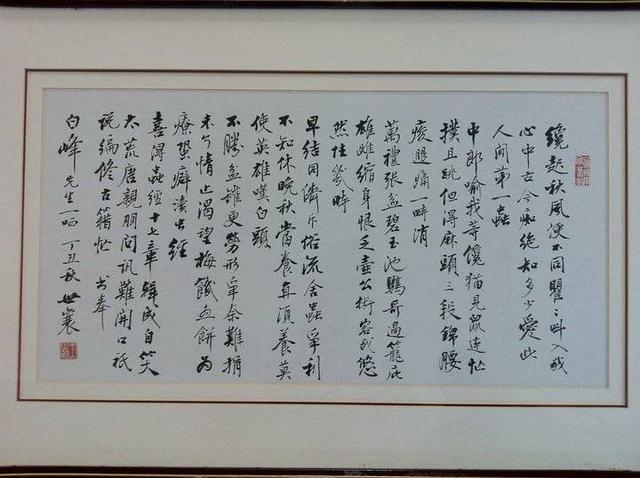 纔起秋風便不同瞿〻叫入我
心中古今癡絕知多少愛此
人間第一蟲
中郎喻我等饞猫見鼠連忙
撲且跳但得麻頭三段錦腰
痠腿痛一時消
萬禮張盆碧玉池鸚哥過籠庇
雄雌縮身恨乏壺公術容我悠
然住幾時
早結同儕斥俗流蟲爭利
不知休晚秋當養直須養莫
使英雄嘆白頭
不勝盆罐更勞形爭奈難捐
未了情止渴望梅饑畫餅為
療蛩癖讀蟲經
喜得蟲經十七章輯成自笑
太荒唐親朋問訊難開口祇
說編修古籍忙 書奉
白峰先生一哂 丁丑秋 世襄